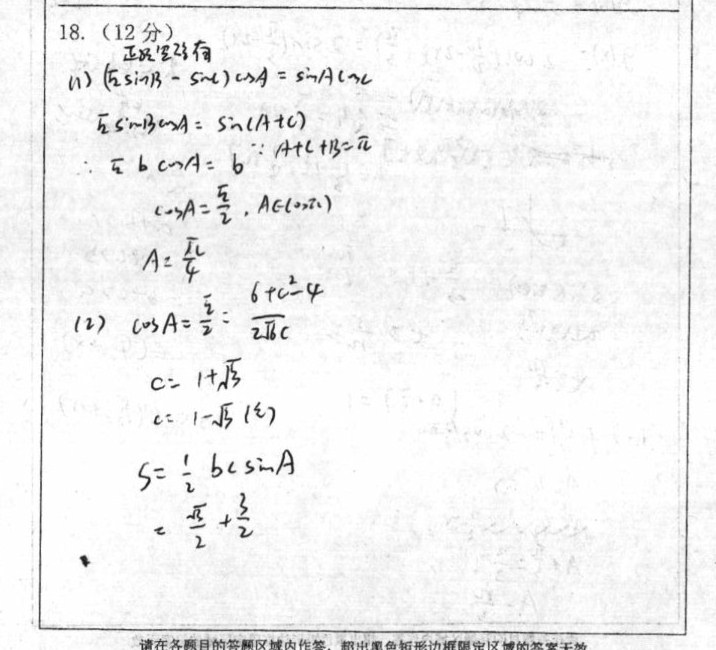 18.（12分）
正弦定理有
(1) (√2 sinB - sinC) cosA = sinA cosC
√2 sinB cosA = sin(A+C)
∵ A+C+B=π
∴ √2 b cosA = b
cosA = √2/2 , A∈(0,π)
A = π/4
(2) cosA = √2/2 = (6+c²-4)/(2√6c)
c = 1+√3
c = 1-√3 (舍)
S = 1/2 bc sinA
= √3/2 + 3/2
请在各题目的答题区域内作答，超出黑色矩形边框限定区域的答案无效